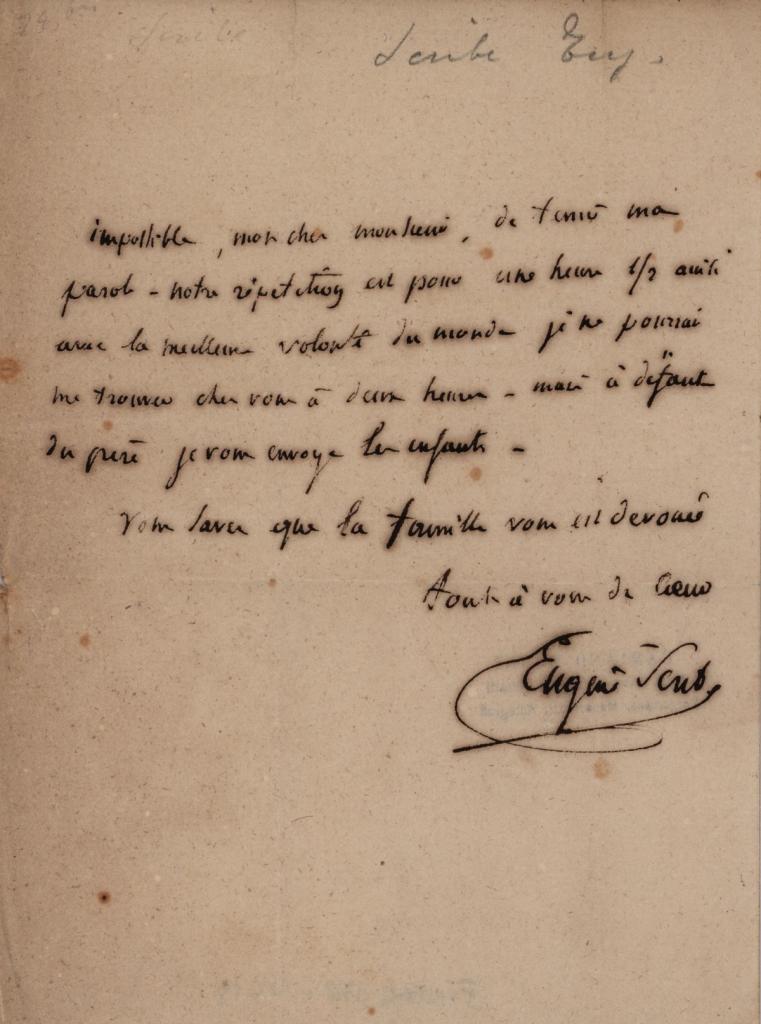 Scribe
Scribe Eug.
impossible, mon cher monsieur, de tenir ma
parole - notre répétition est pour une heure 1/2 ainsi
avec la meilleure volonté du monde je ne pourrai
me trouver chez vous à deux heures - mais à défaut
du père je vous envoye les enfants -
Vous savez que la famille vous est devouée
tout à vous de coeur
Eugène Scribe